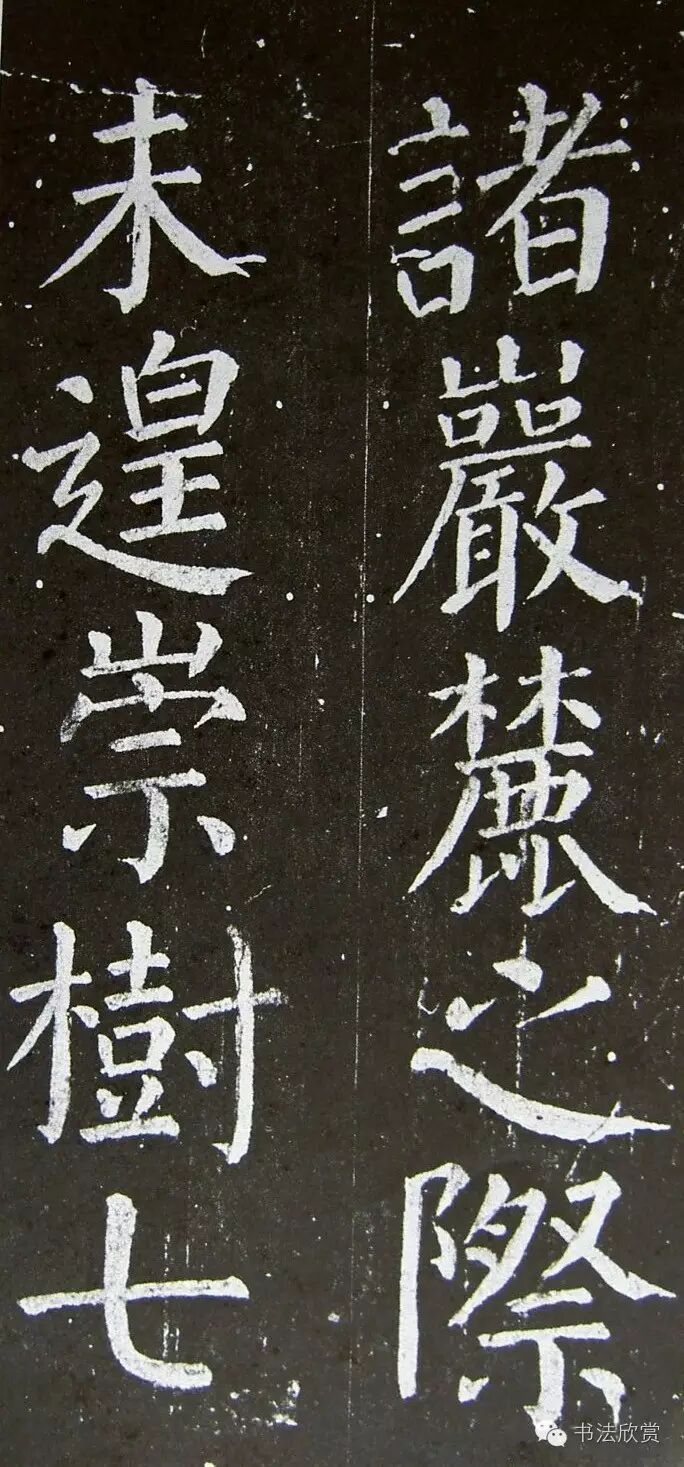 諸巖麓之際
未遑崇樹七
书法欣赏